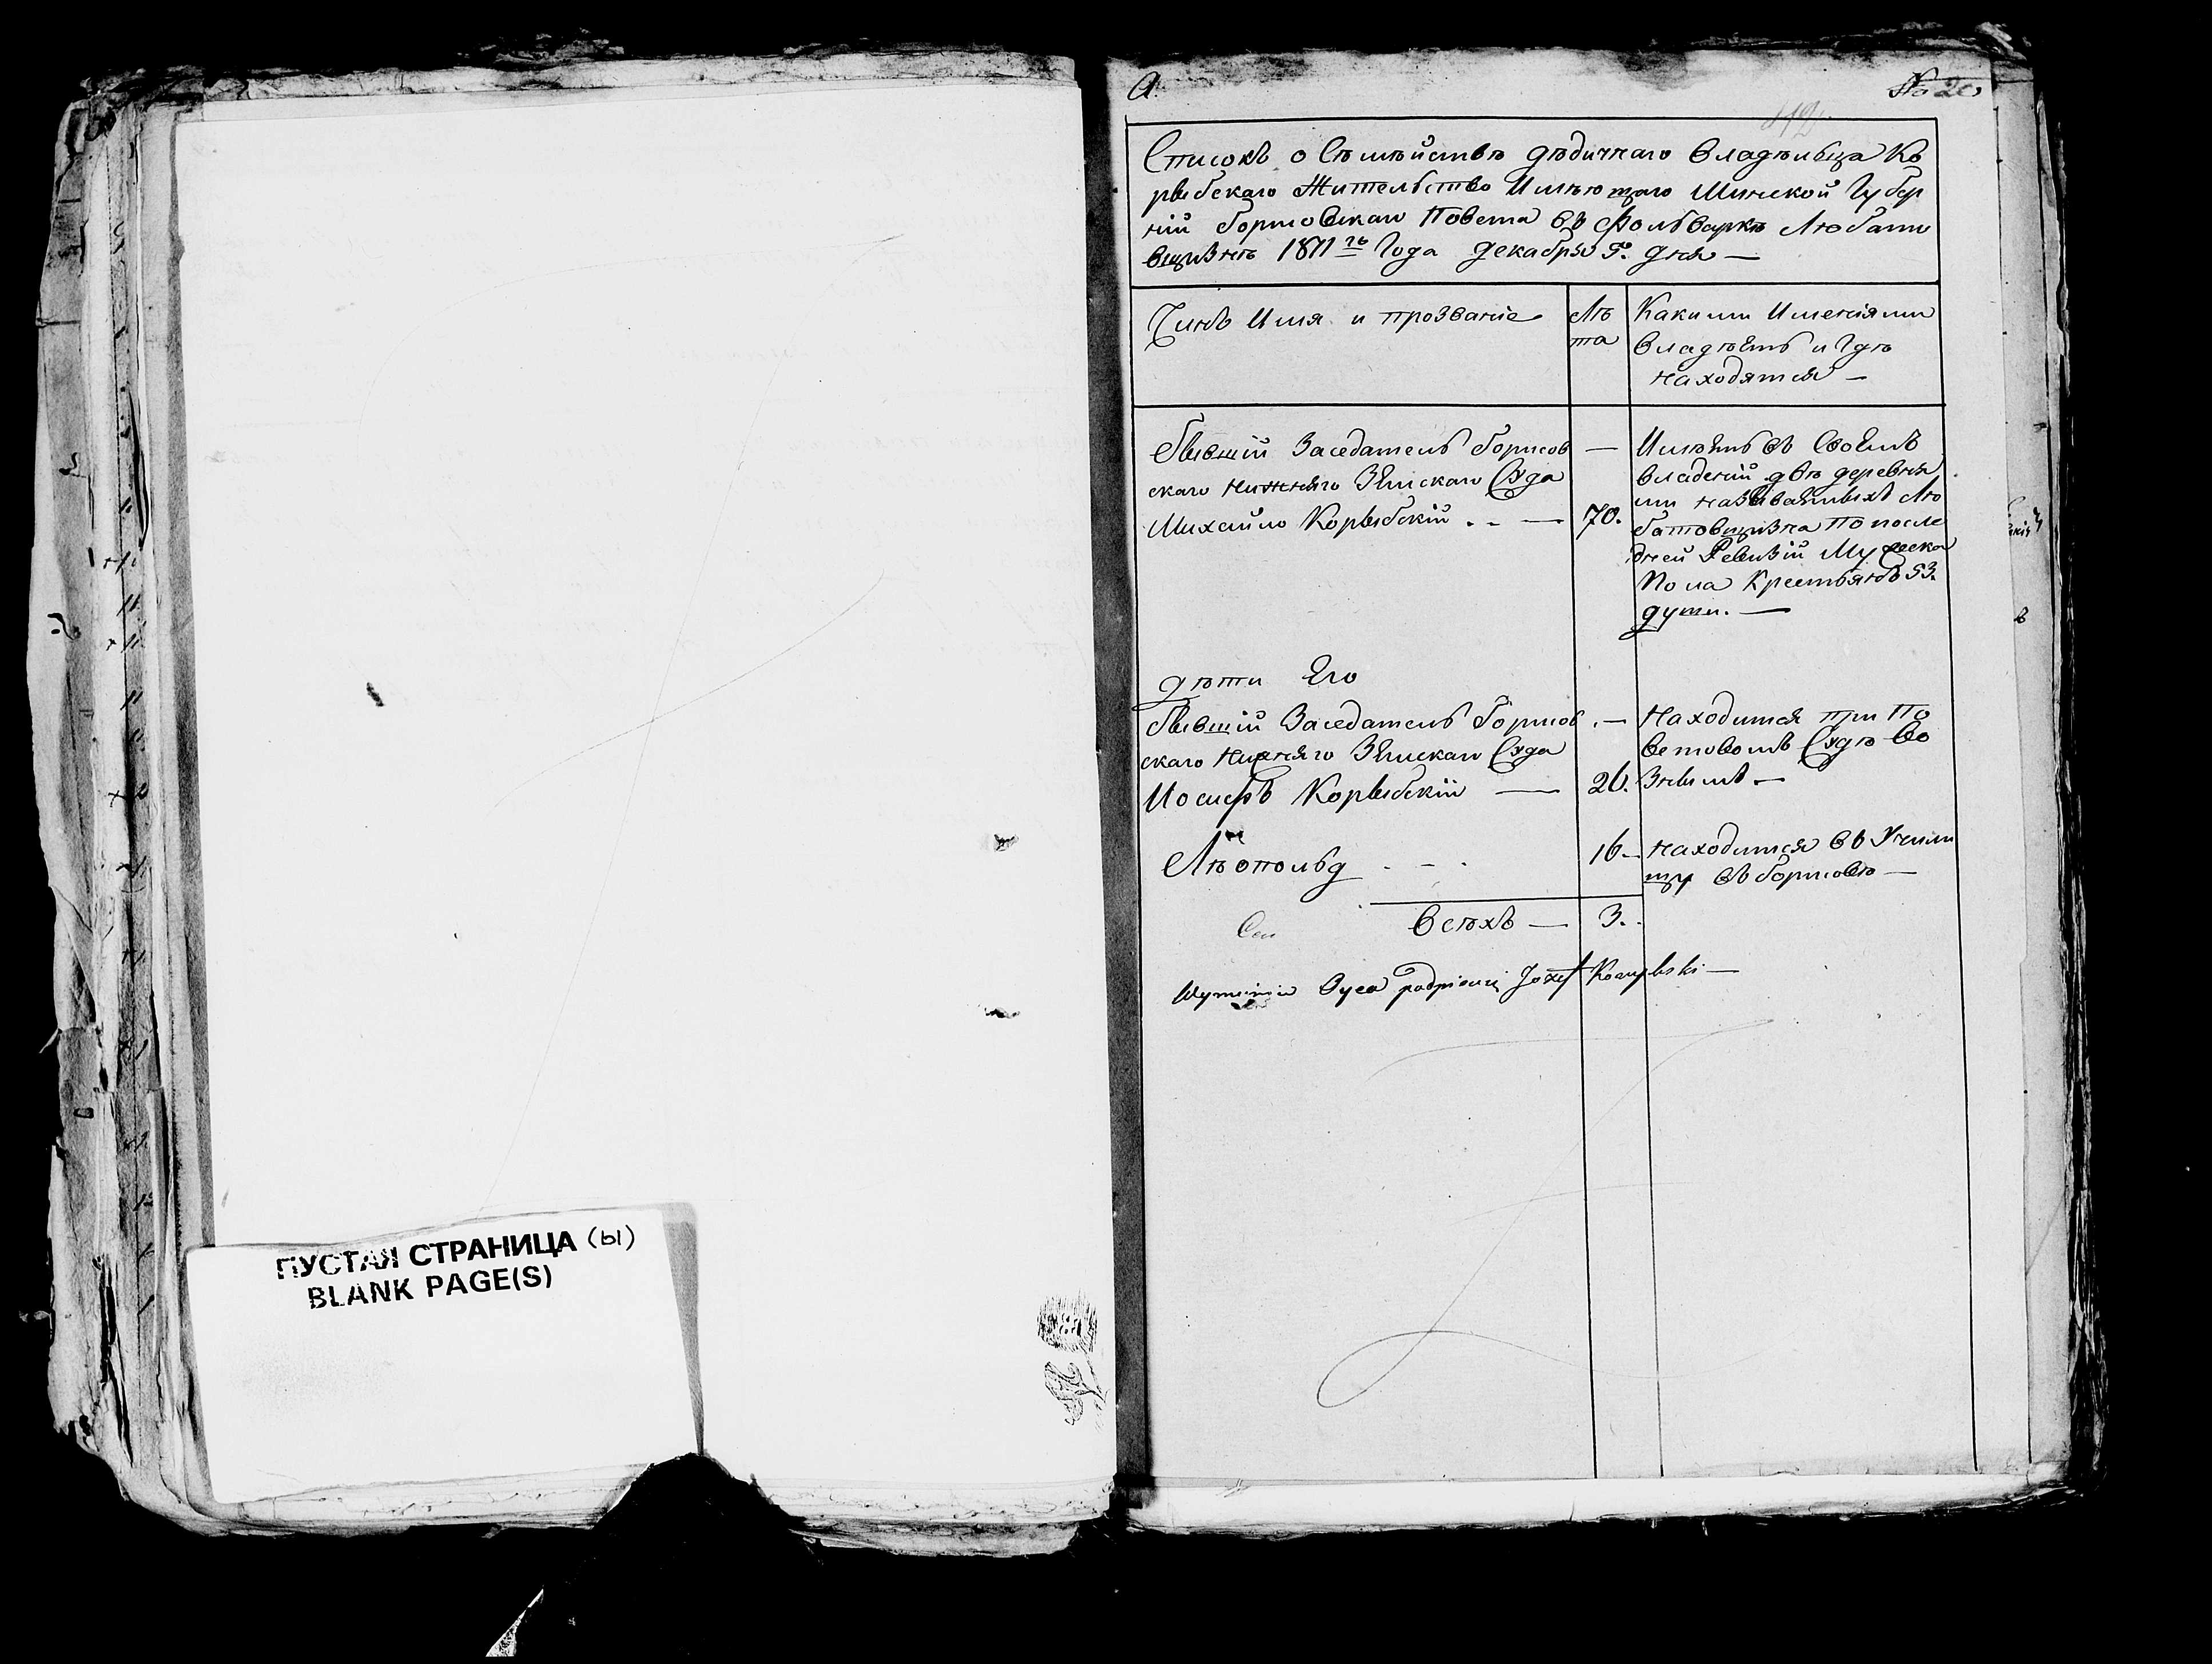 ПУСТАЯ СТРАНИЦА (ы)
BLANK PAGE(S)
А.
№ 20
Списокъ о Семѣйствѣ дѣдичнаго владѣльца Ко
рыбскаго Жительство Имѣющаго Минской Губер
ніи Борисовскаго Повета въ Фольваркѣ Любато
вщизнѣ 1811го Года декабря 5. дня —
Чинъ Имя и прозваніе
Лѣ
та
Какими Именіями
владѣетъ и Гдѣ
находятся —
Бывшій Заседатель Борисов
скаго Нижняго Земскаго Суда
Михайло Корыбскій . . —
70.
Имѣетъ въ Своемъ
владеніи двѣ деревня
ми называемыхъ Лю
батовщизна По после
дней Ревизіи Мужеска
Пола Крестьянъ 53.
души. —
дѣти Его
Бывшій Заседатель Борисов
скаго Нижняго Земскаго Суда
Иосифъ Корыбскій —
26.
Находится при По
ветовомъ Судѣ Во
Знымъ —
Лѣопольд . - .
16 —
находится въ Учили
щу въ Борисовѣ —
Всѣхъ — 3.
Oyca podpisuię Jozef Korybski —